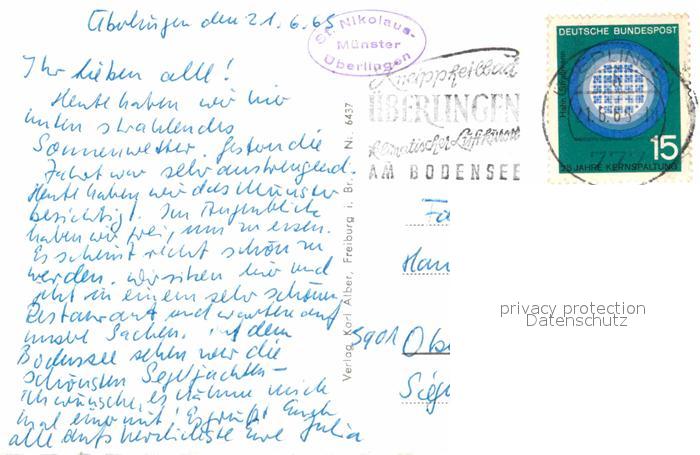 Überlingen den 21.6.65
Ihr Lieben alle!
Heute haben wir hier
unten strahlendes
Sonnenwetter. Gestern die
Fahrt war sehr anstrengend.
Heute haben wir das Münster
besichtigt. Im Augenblick
haben wir frei, um zu essen.
Es scheint recht schön zu
werden. Wir sitzen hier und
jetzt in einem sehr schönen
Restaurant und warten auf
unsere Sachen. Auf dem
Bodensee sehen wir die
schönsten Segeljachten -
Ich wünsche, es nähme mich
mal einer mit! Es grüßt Euch
alle aufs herzlichste Eure Julia
St. Nikolaus-
Münster
Überlingen
Kneippheilbad
ÜBERLINGEN
klimatischer Luftkurort
AM BODENSEE
DEUTSCHE BUNDESPOST
Hahn / Straßmann
15
25 JAHRE KERNSPALTUNG
ÜBERLINGEN
21.6.65
Verlag Karl Alber, Freiburg i. Br. Nr. 6437
Fa
Han
5901 Obe
Sieg
privacy protection
Datenschutz